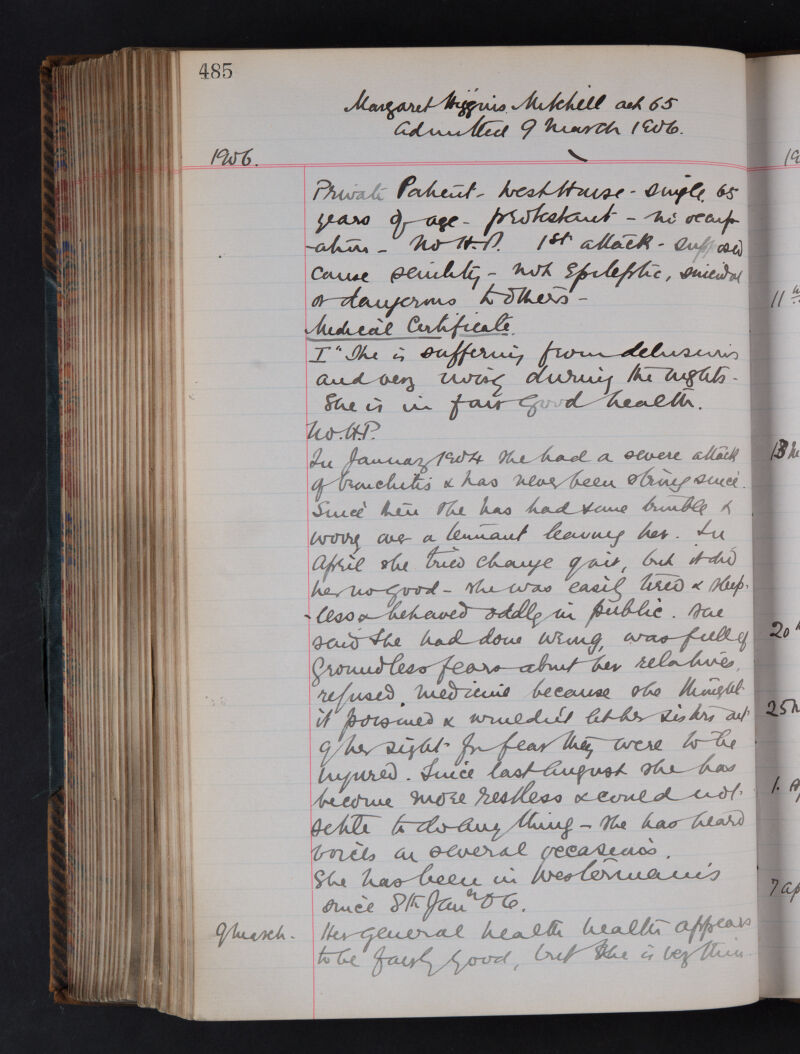 485
Margaret Higgins Mitchell aet 65
admitted 9 March 1906.
1906.
19
Private Patient - West House - single, 65
years of age - protestant - no occup
-ation - No H.P. 1st attack - supposed
cause senility - not Epileptic, suicidal
or dangerous to others -
Medical Certificate
I "She is suffering from delusions
and very noisy during the nights -
She is in fair Good health.
No. H.P.
In January 1904 she had a severe attack
of bronchitis & has never been strong since.
Since then she has had some trouble &
worry over a tennant leaving her. In
April she tried change of air, but it did
her no good - she was easily tired & sleep-
-less & behaved oddly in public. She
said she had done wrong, was full of
Groundless fears about her relatives,
refused medicine because she thought
it poisoned & wouldn't let her sisters out
of her sight for fear they were to be
injured. Since last August she has
become more restless & could not
settle to do any thing - she has heard
voices on several occasions.
She has been in Westermains
since 8th Jany 06.
9 March. Her general health health appears
to be fairly good, but she is very thin -
11
13 M
20
25 M
1. A
7 Ap